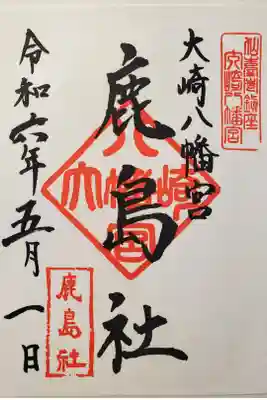 仙臺総鎮座
大崎八幡宮
大崎八幡宮
鹿島社
大崎八幡宮
令和六年五月一日
鹿島社